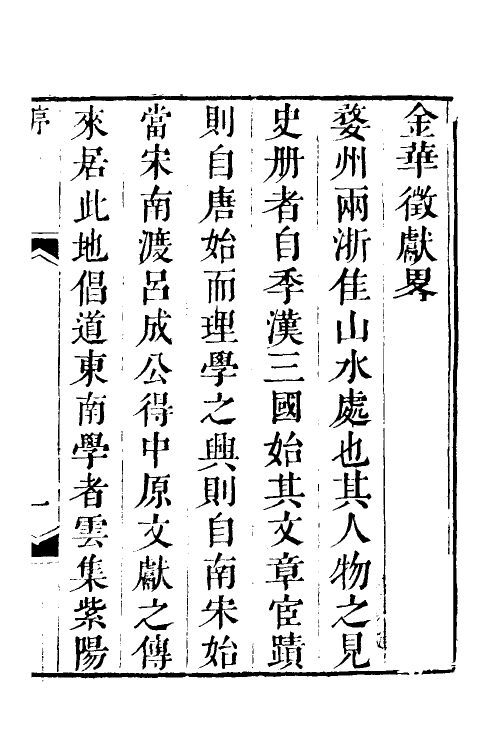 金華徵獻畧
婺州兩浙佳山水處也其人物之見
史册者自季漢三國始其文章宦蹟
則自唐始而理學之興則自南宋始
當宋南渡呂成公得中原文獻之傳
來居此地倡道東南學者雲集紫陽
序
一